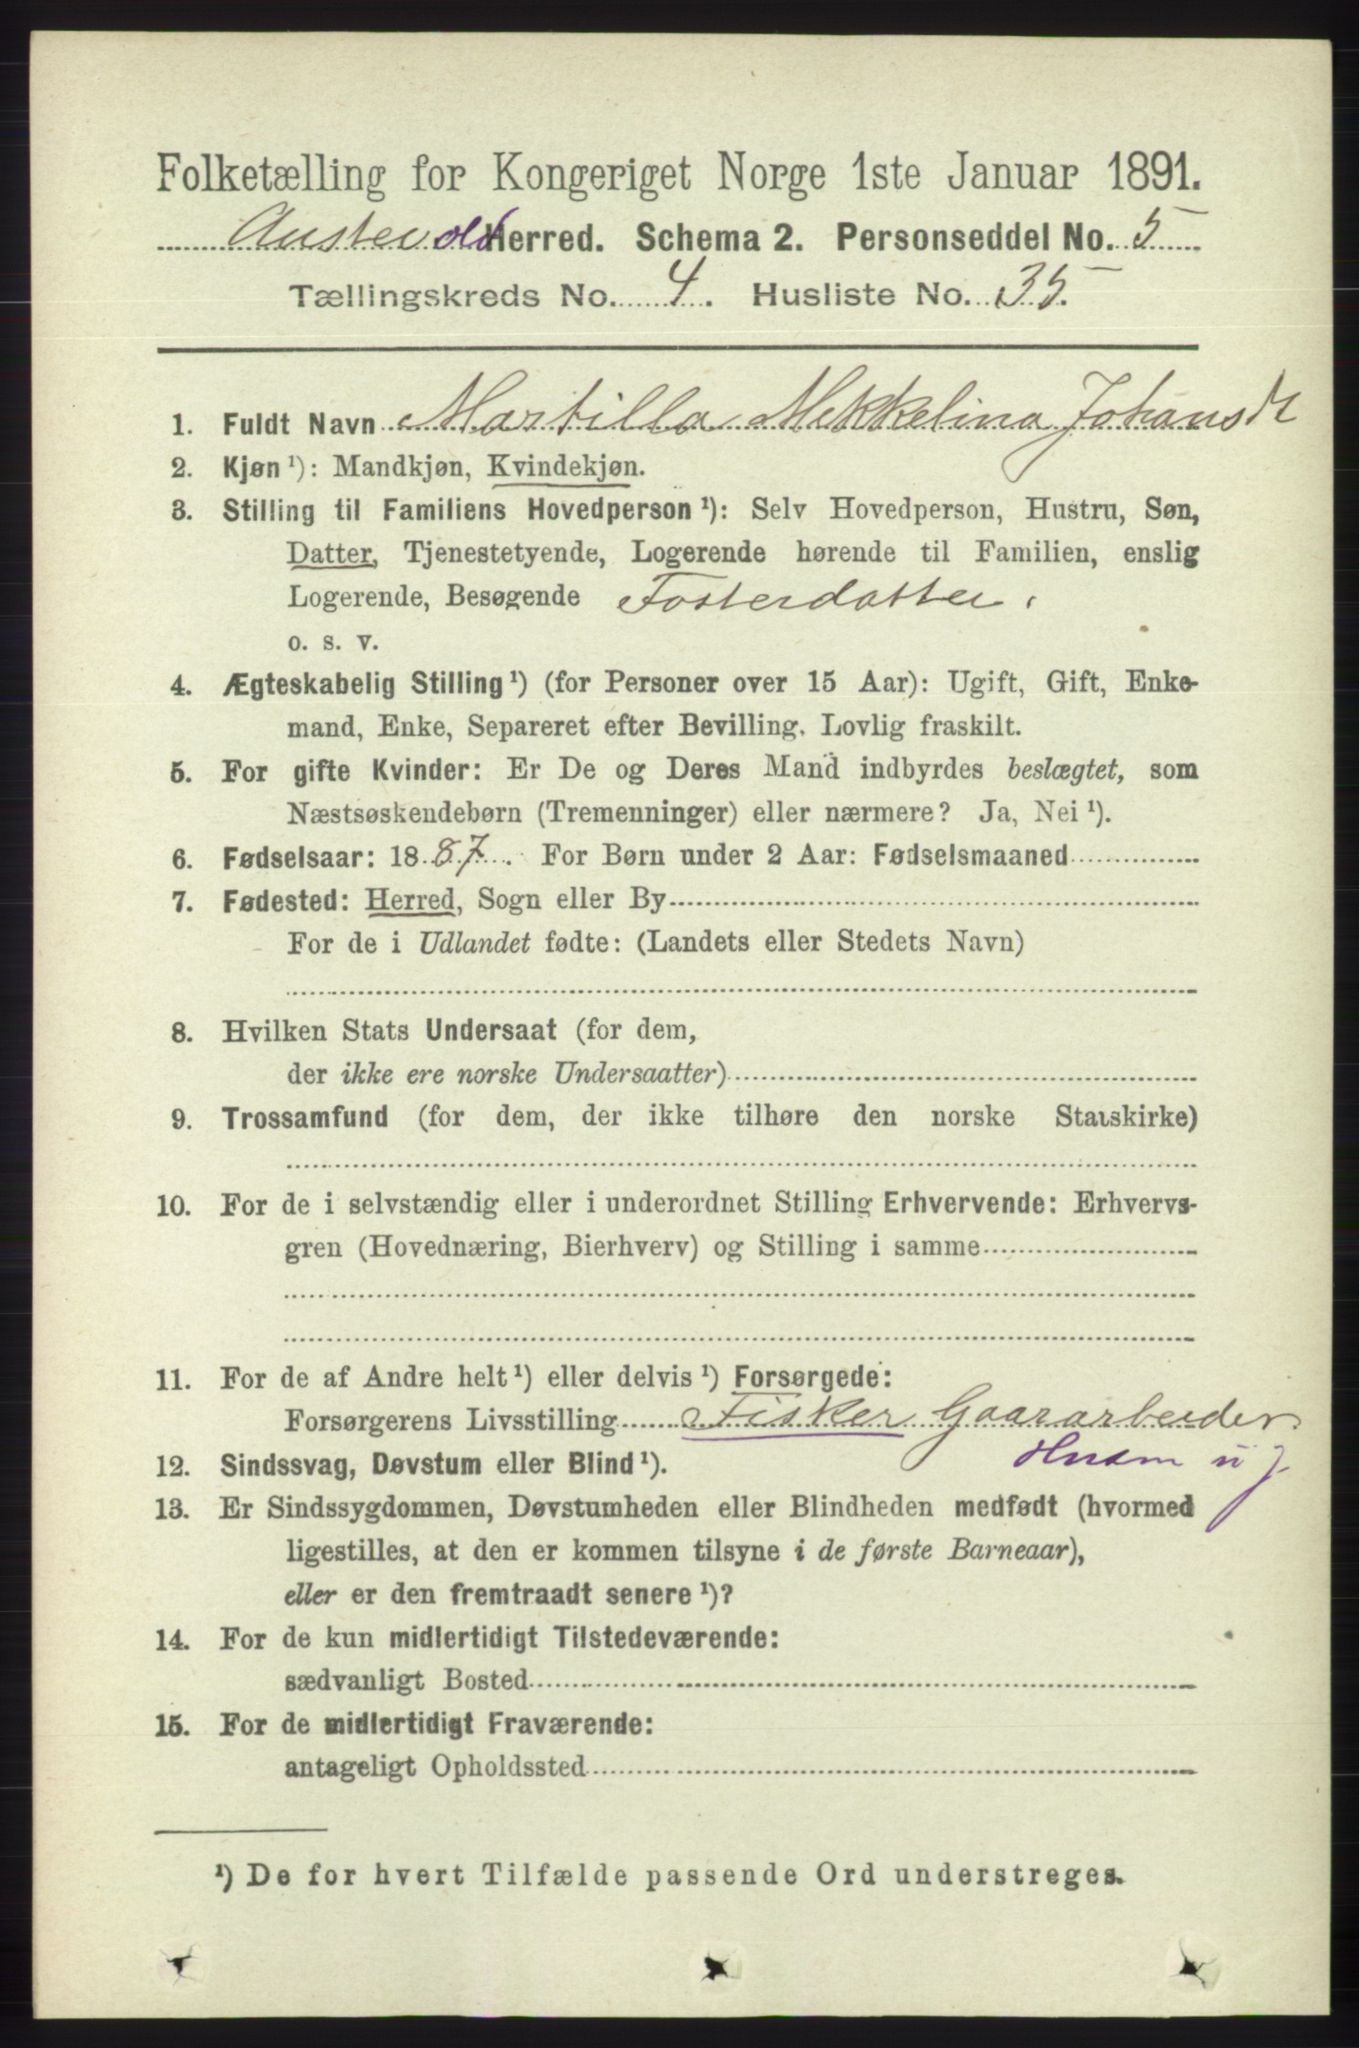 Folketælling for Kongeriget Norge 1ste Januar 1891.
Austevold Herred. Schema 2. Personseddel No. 5
Tællingskreds No. 4. Husliste No. 35.
1. Fuldt Navn Martilla Mekkelina Johansdt
2. Kjøn ¹): Mandkjøn, Kvindekjøn.
3. Stilling til Familiens Hovedperson ¹): Selv Hovedperson, Hustru, Søn,
Datter, Tjenestetyende, Logerende hørende til Familien, enslig
Logerende, Besøgende Fosterdatter.
o. s. v.
4. Ægteskabelig Stilling ¹) (for Personer over 15 Aar): Ugift, Gift, Enke-
mand, Enke, Separeret efter Bevilling. Lovlig fraskilt.
5. For gifte Kvinder: Er De og Deres Mand indbyrdes beslægtet, som
Næstsøskendebørn (Tremenninger) eller nærmere? Ja, Nei ¹).
6. Fødselsaar: 1887. For Børn under 2 Aar: Fødselsmaaned
7. Fødested: Herred, Sogn eller By
For de i Udlandet fødte: (Landets eller Stedets Navn)
8. Hvilken Stats Undersaat (for dem,
der ikke ere norske Undersaatter)
9. Trossamfund (for dem, der ikke tilhøre den norske Statskirke)
10. For de i selvstændig eller i underordnet Stilling Erhvervende: Erhvervs-
gren (Hovednæring, Bierhverv) og Stilling i samme
11. For de af Andre helt ¹) eller delvis ¹) Forsørgede:
Forsørgerens Livsstilling Fisker Gaararbeider
12. Sindssvag, Døvstum eller Blind ¹). Husm u j.
13. Er Sindssygdommen, Døvstumheden eller Blindheden medfødt (hvormed
ligestilles, at den er kommen tilsyne i de første Barneaar),
eller er den fremtraadt senere ¹)?
14. For de kun midlertidigt Tilstedeværende:
sædvanligt Bosted
15. For de midlertidigt Fraværende:
antageligt Opholdssted
¹) De for hvert Tilfælde passende Ord understreges.